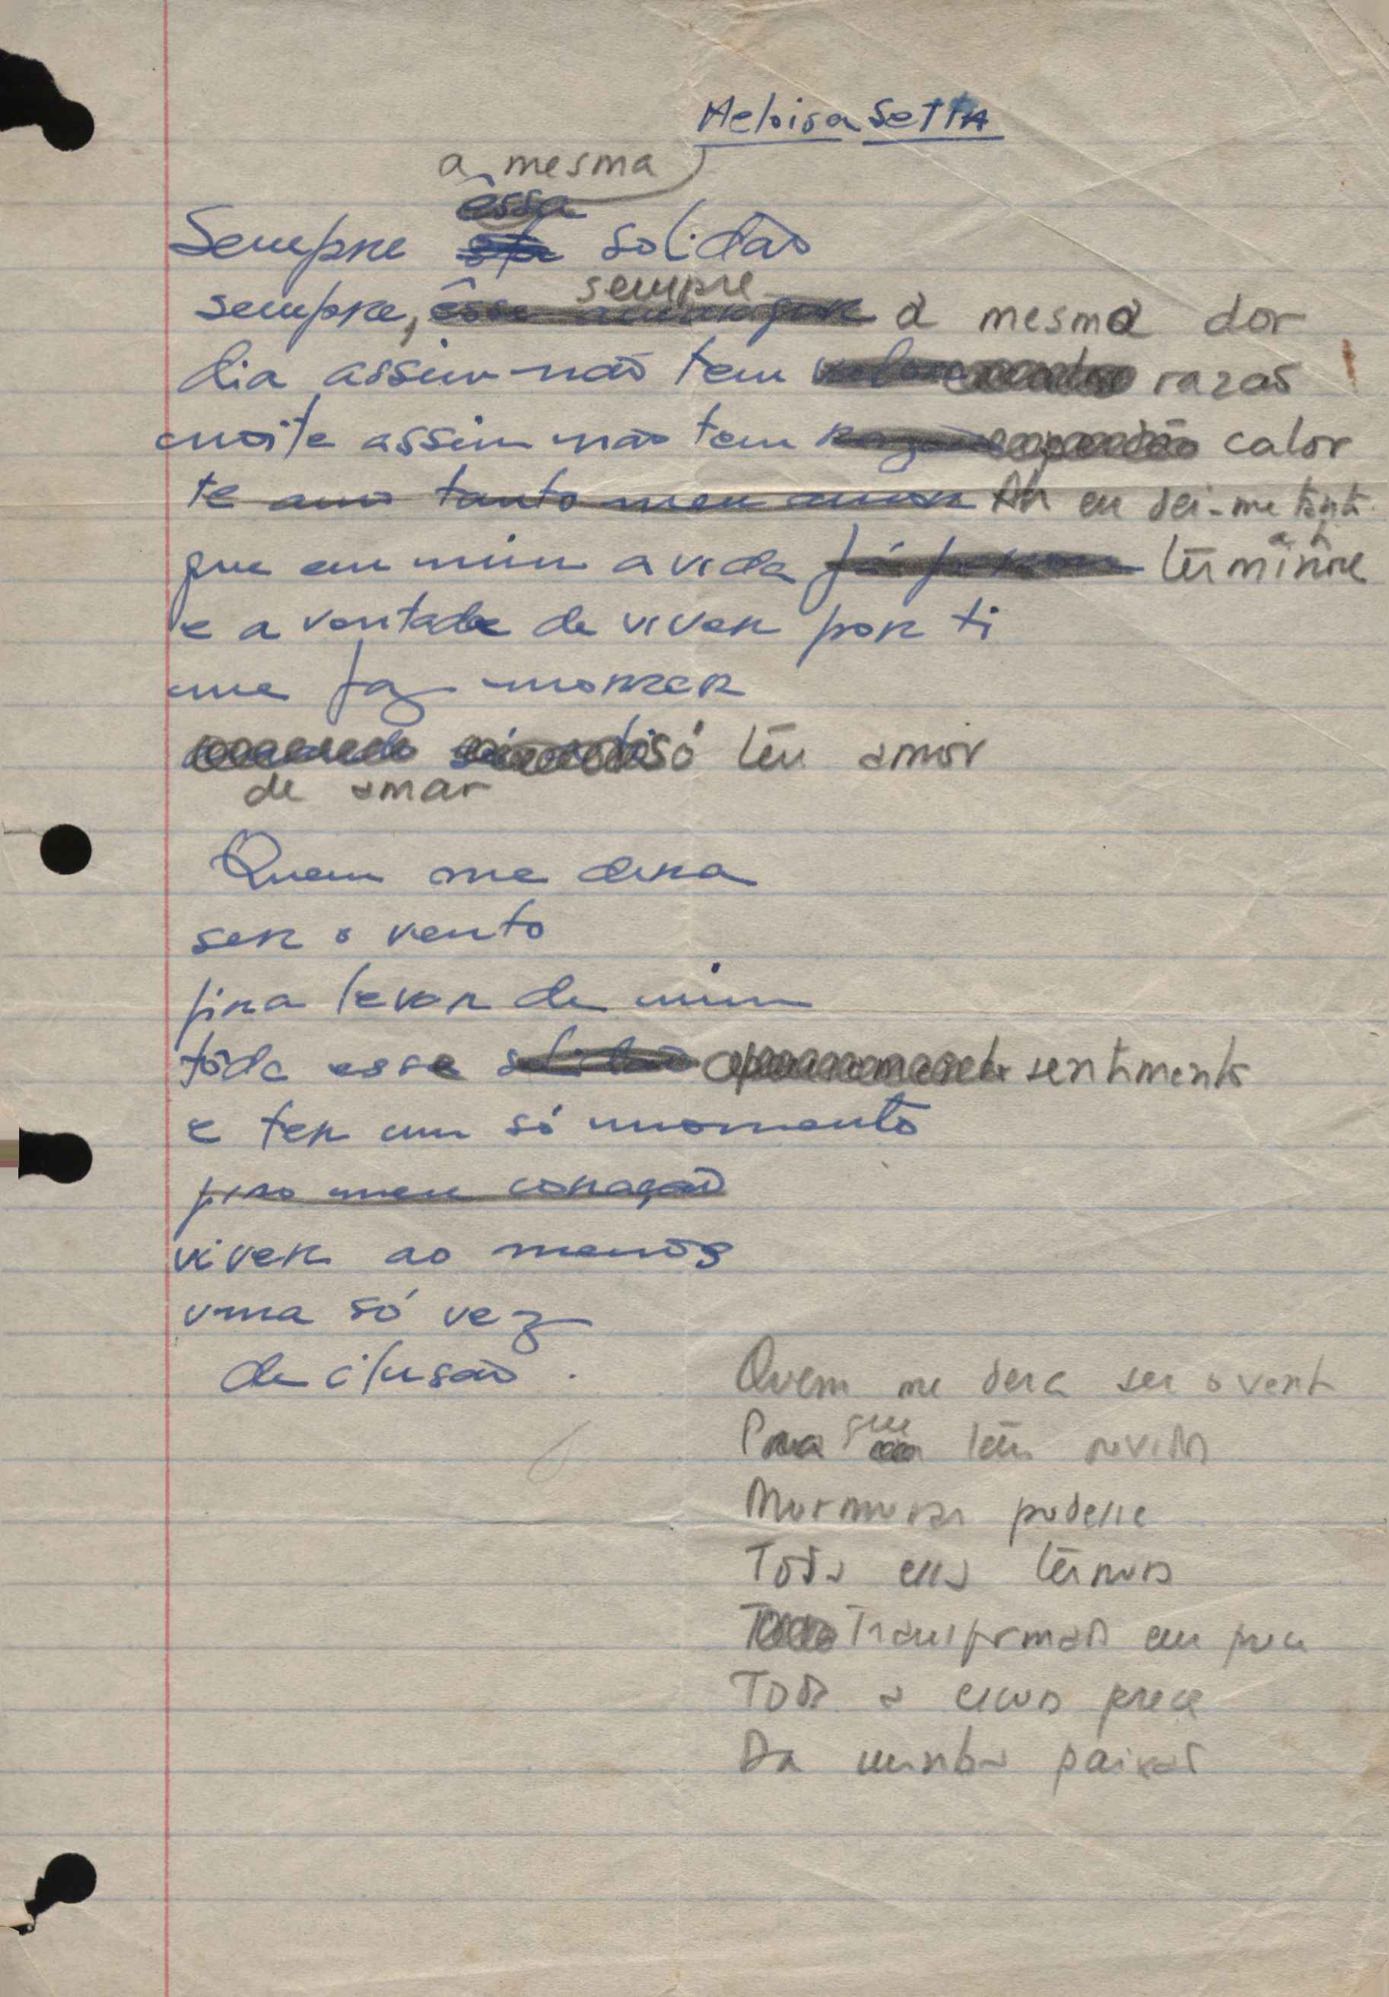 Heloisa Setta
a mesma
êssa
Sempre solidão
sempre
sempre, êsse a mesma dor
dia assim não tem razão
noite assim não tem calor
te amo tanto meu amor Ah eu dei-me tanto
que em mim a vida
e a vontade de viver por ti
me faz morrer
só teu amor
de amar
Quem me dera
ser o vento
pra levar de mim
tôda esse solidão sentimento
e ter um só momento
pro meu coração
viver ao menos
uma só vez
de ilusão.
Quem me dera ser o vento
Para que teu ouvido
Murmurar pudesse
Toda essa ternura
Transformada em prece
Toda a escura prece
Da minha paixão